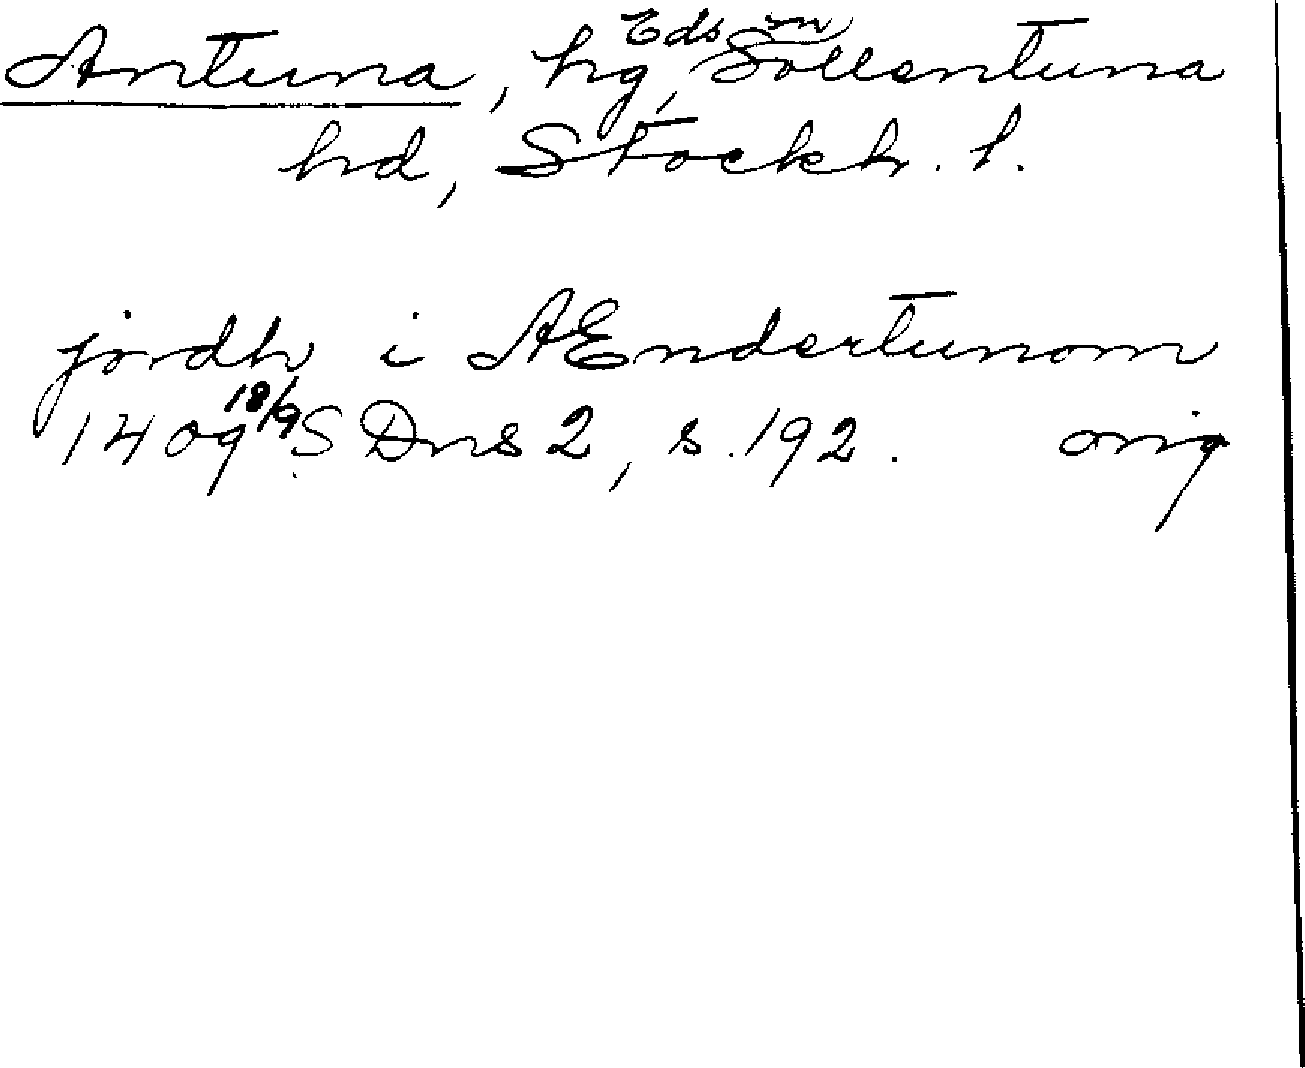 Antuna, hg, Eds sn Sollentuna
hd, Stockh. l.
jordh i AEndertunom
1409 18/9 SDns 2, s. 192. orig